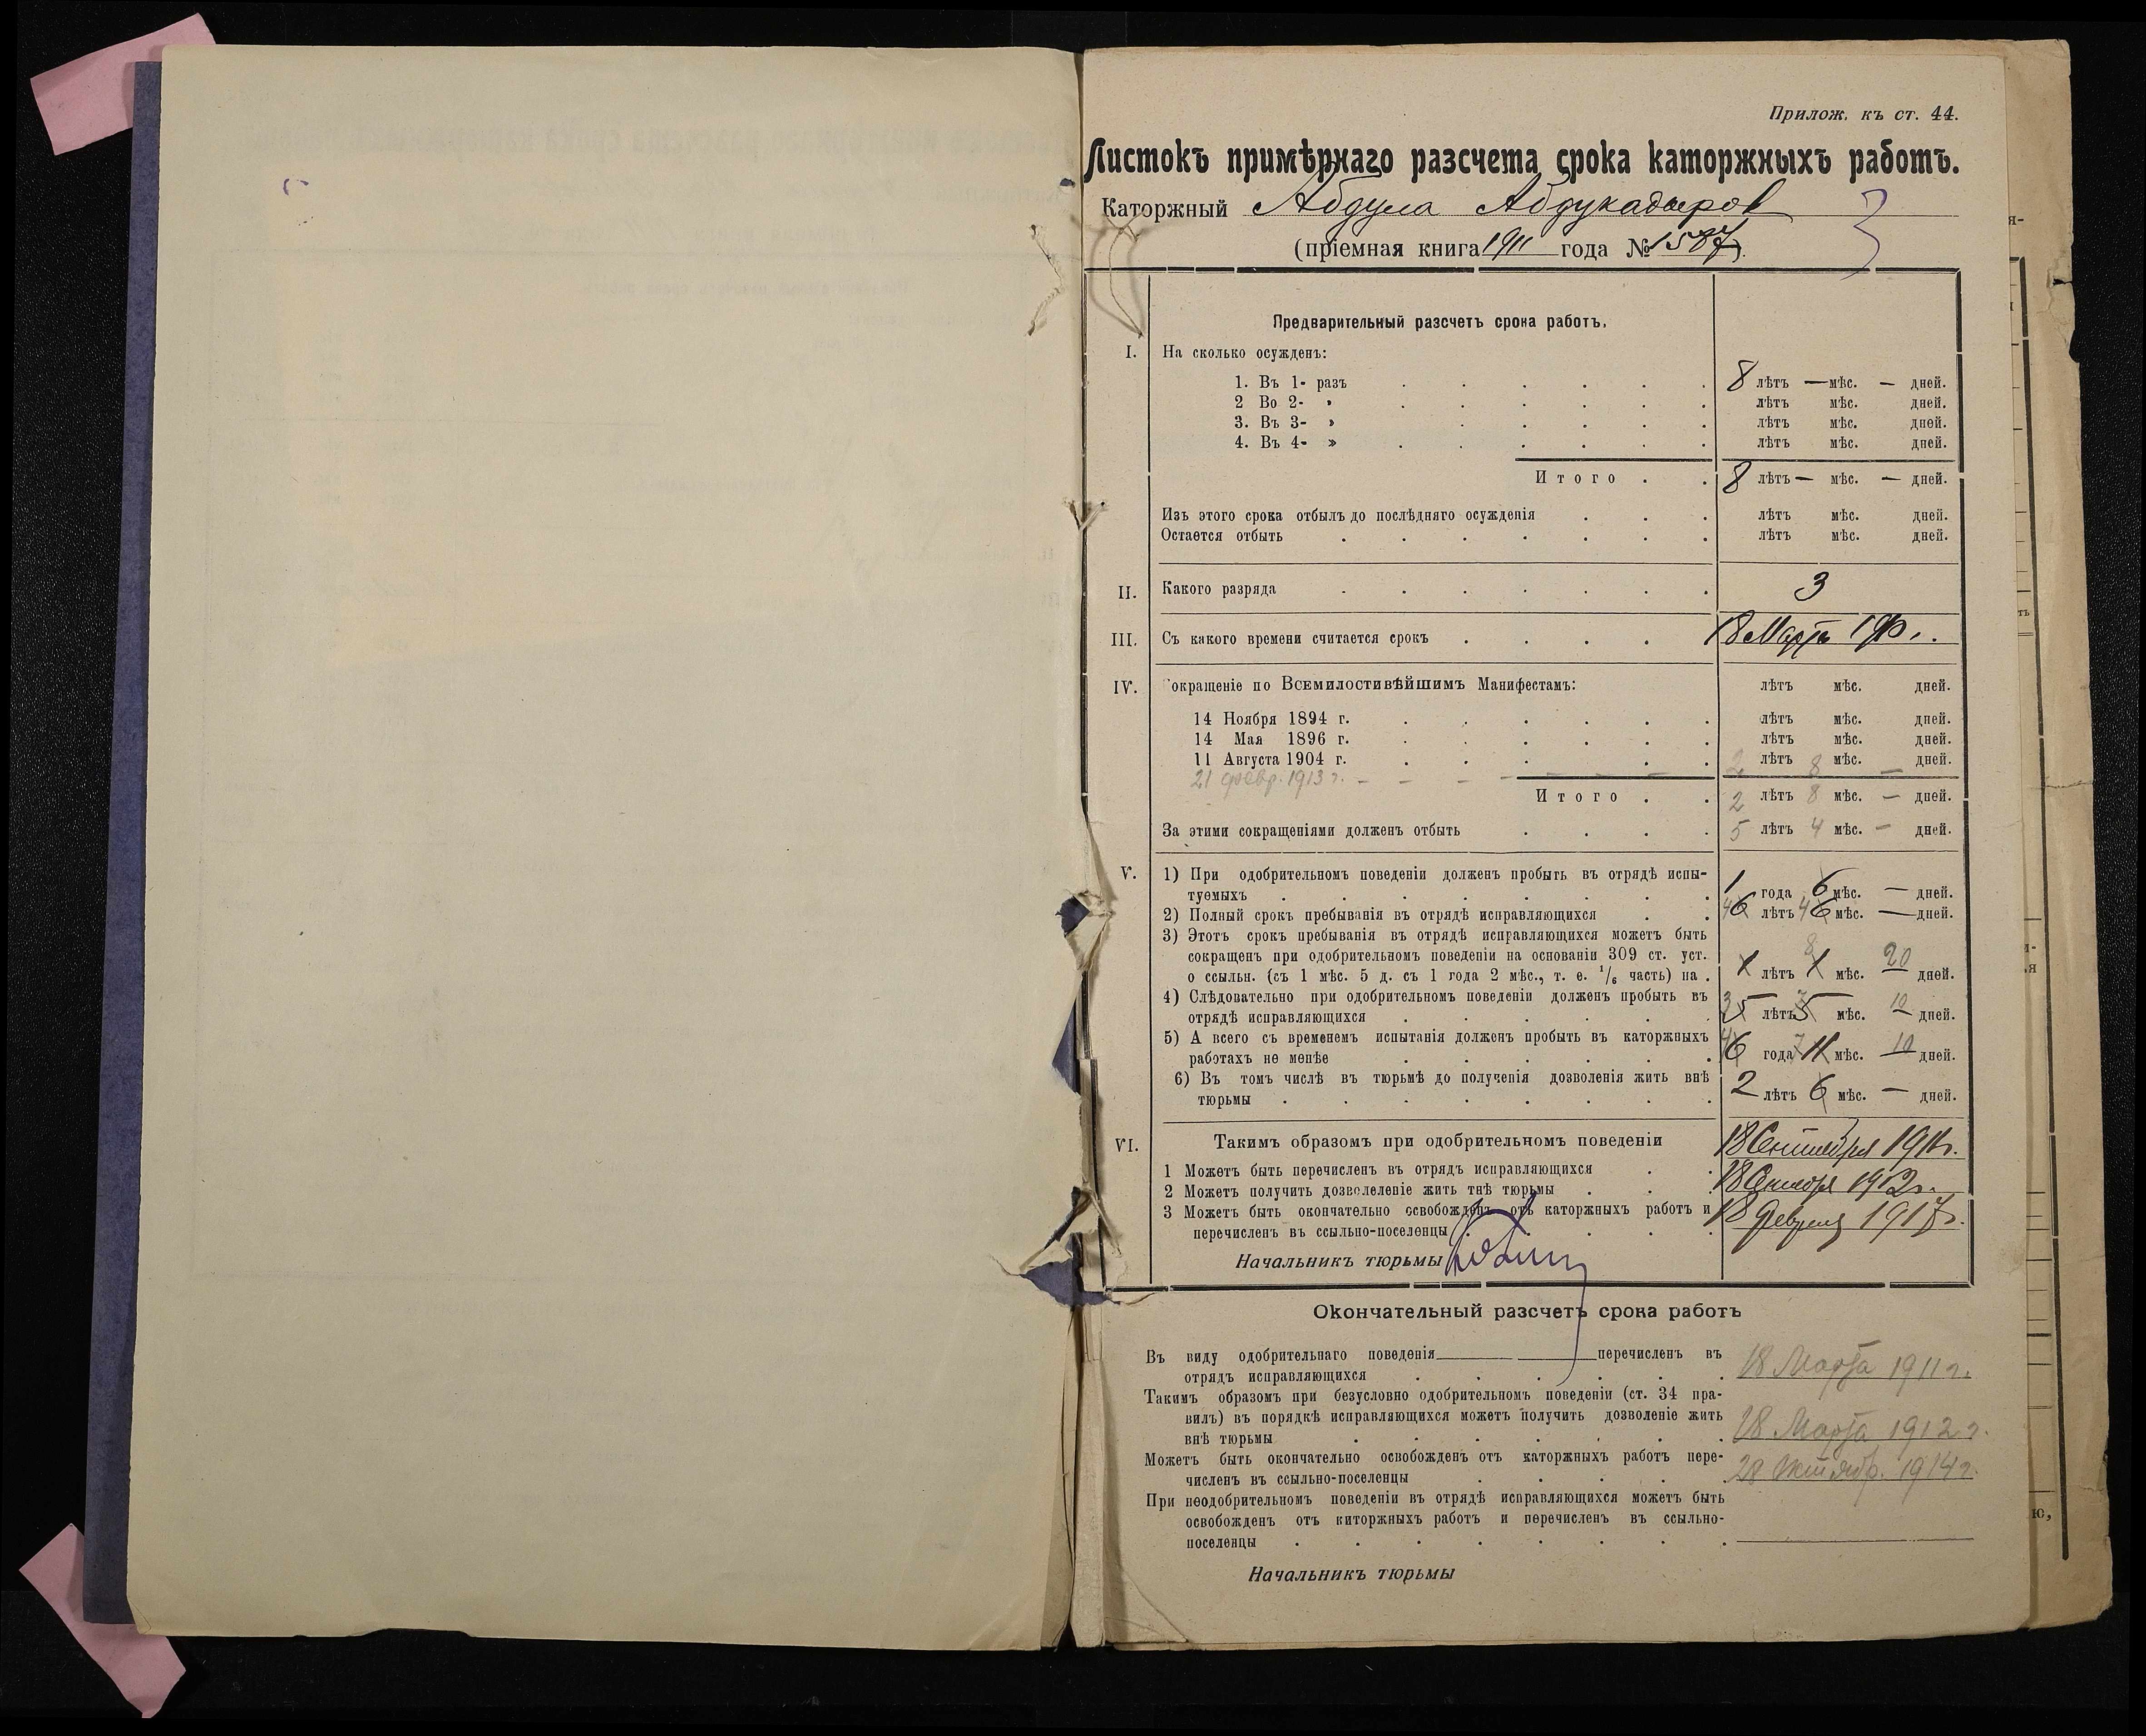 Прилож. къ ст. 44.
Листокъ примѣрнаго разсчета срока каторжныхъ работъ.
Каторжный Абдула Абдукадыров
(пріемная книга 1911 года № 1587)
Предварительный разсчетъ срока работъ.
I. На сколько осужденъ:
1. Въ 1- разъ 8 лѣтъ — мѣс. — дней.
2 Во 2- » лѣтъ мѣс. дней.
3. Въ 3- » лѣтъ мѣс. дней.
4. Въ 4- » лѣтъ мѣс. дней.
Итого 8 лѣтъ — мѣс. — дней.
Изъ этого срока отбылъ до послѣдняго осужденія лѣтъ мѣс. дней.
Остается отбыть лѣтъ мѣс. дней.
II. Какого разряда 3
III. Съ какого времени считается срокъ 18 Марта 1910 г.
IV. Сокращеніе по Всемилостивѣйшимъ Манифестамъ: лѣтъ мѣс. дней.
14 Ноября 1894 г. лѣтъ мѣс. дней.
14 Мая 1896 г. лѣтъ мѣс. дней.
11 Августа 1904 г. лѣтъ мѣс. дней.
21 февр. 1913 г. - - - - - - 2 8 —
Итого 2 лѣтъ 8 мѣс. — дней.
За этими сокращеніями долженъ отбыть 5 лѣтъ 4 мѣс. — дней.
V. 1) При одобрительномъ поведеніи долженъ пробыть въ отрядѣ испы-
туемыхъ 1 года 6 мѣс. — дней.
2) Полный срокъ пребыванія въ отрядѣ исправляющихся 4 6 лѣтъ 4 6 мѣс. — дней.
3) Этотъ срокъ пребыванія въ отрядѣ исправляющихся можетъ быть
сокращенъ при одобрительномъ поведеніи на основаніи 309 ст. уст.
о ссыльн. (съ 1 мѣс. 5 д. съ 1 года 2 мѣс., т. е. 1/6 часть) на 1 лѣтъ 8 1 мѣс. 20 дней.
4) Слѣдовательно при одобрительномъ поведеніи долженъ пробыть въ
отрядѣ исправляющихся 3 5 лѣтъ 7 5 мѣс. 10 дней.
5) А всего съ временемъ испытанія долженъ пробыть въ каторжныхъ
работахъ не менѣе 4 6 года 7 11 мѣс. 10 дней.
6) Въ томъ числѣ въ тюрьмѣ до полученія дозволенія жить внѣ
тюрьмы 2 лѣтъ 6 мѣс. — дней.
VI. Такимъ образомъ при одобрительномъ поведеніи
1 Можетъ быть перечисленъ въ отрядъ исправляющихся 18 Сентября 1911 г.
2 Можетъ получить дозволеленіе жить тнѣ тюрьмы 1912 г.
3 Можетъ быть окончательно освобожденъ отъ каторжныхъ работъ и
перечисленъ въ ссыльно-поселенцы 18 Февраля 1917 г.
Начальникъ тюрьмы
Окончательный разсчетъ срока работъ
Въ виду одобрительнаго поведенія перечисленъ въ
отрядъ исправляющихся 18 Марта 1911 г.
Такимъ образомъ при безусловно одобрительномъ поведеніи (ст. 34 пра-
вилъ) въ порядкѣ исправляющихся можетъ получить дозволеніе жить
внѣ тюрьмы 18 Марта 1912 г.
Можетъ быть окончательно освобожденъ отъ каторжныхъ работъ пере-
численъ въ ссыльно-поселенцы 28 Октябр. 1914 г.
При неодобрительномъ поведеніи въ отрядѣ исправляющихся можетъ быть
освобожденъ отъ киторжныхъ работъ и перечисленъ въ ссыльно-
поселенцы
Начальникъ тюрьмы